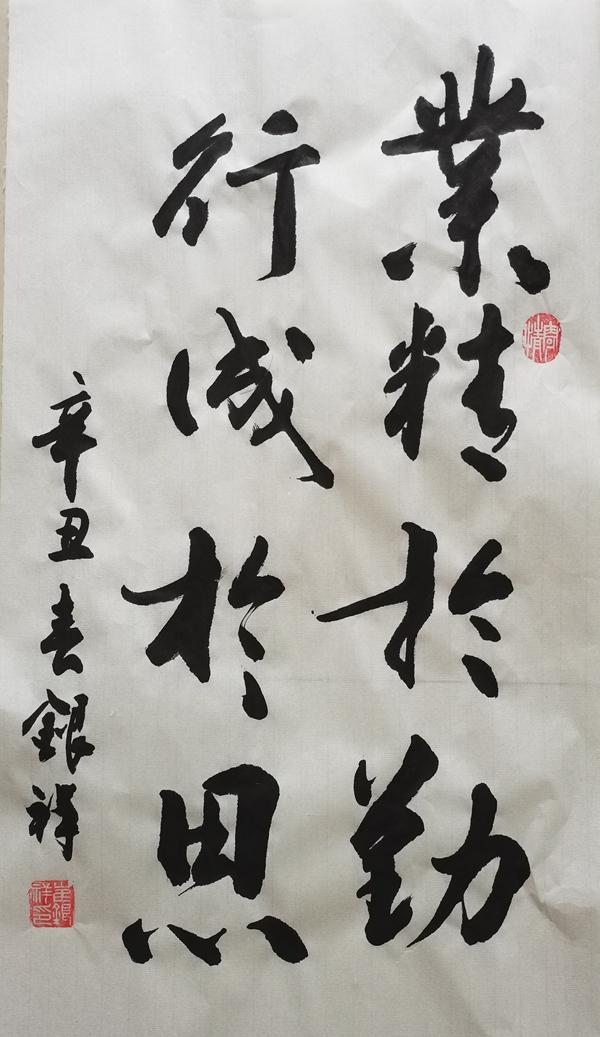 業精於勤
行成於思
辛丑春銀祥